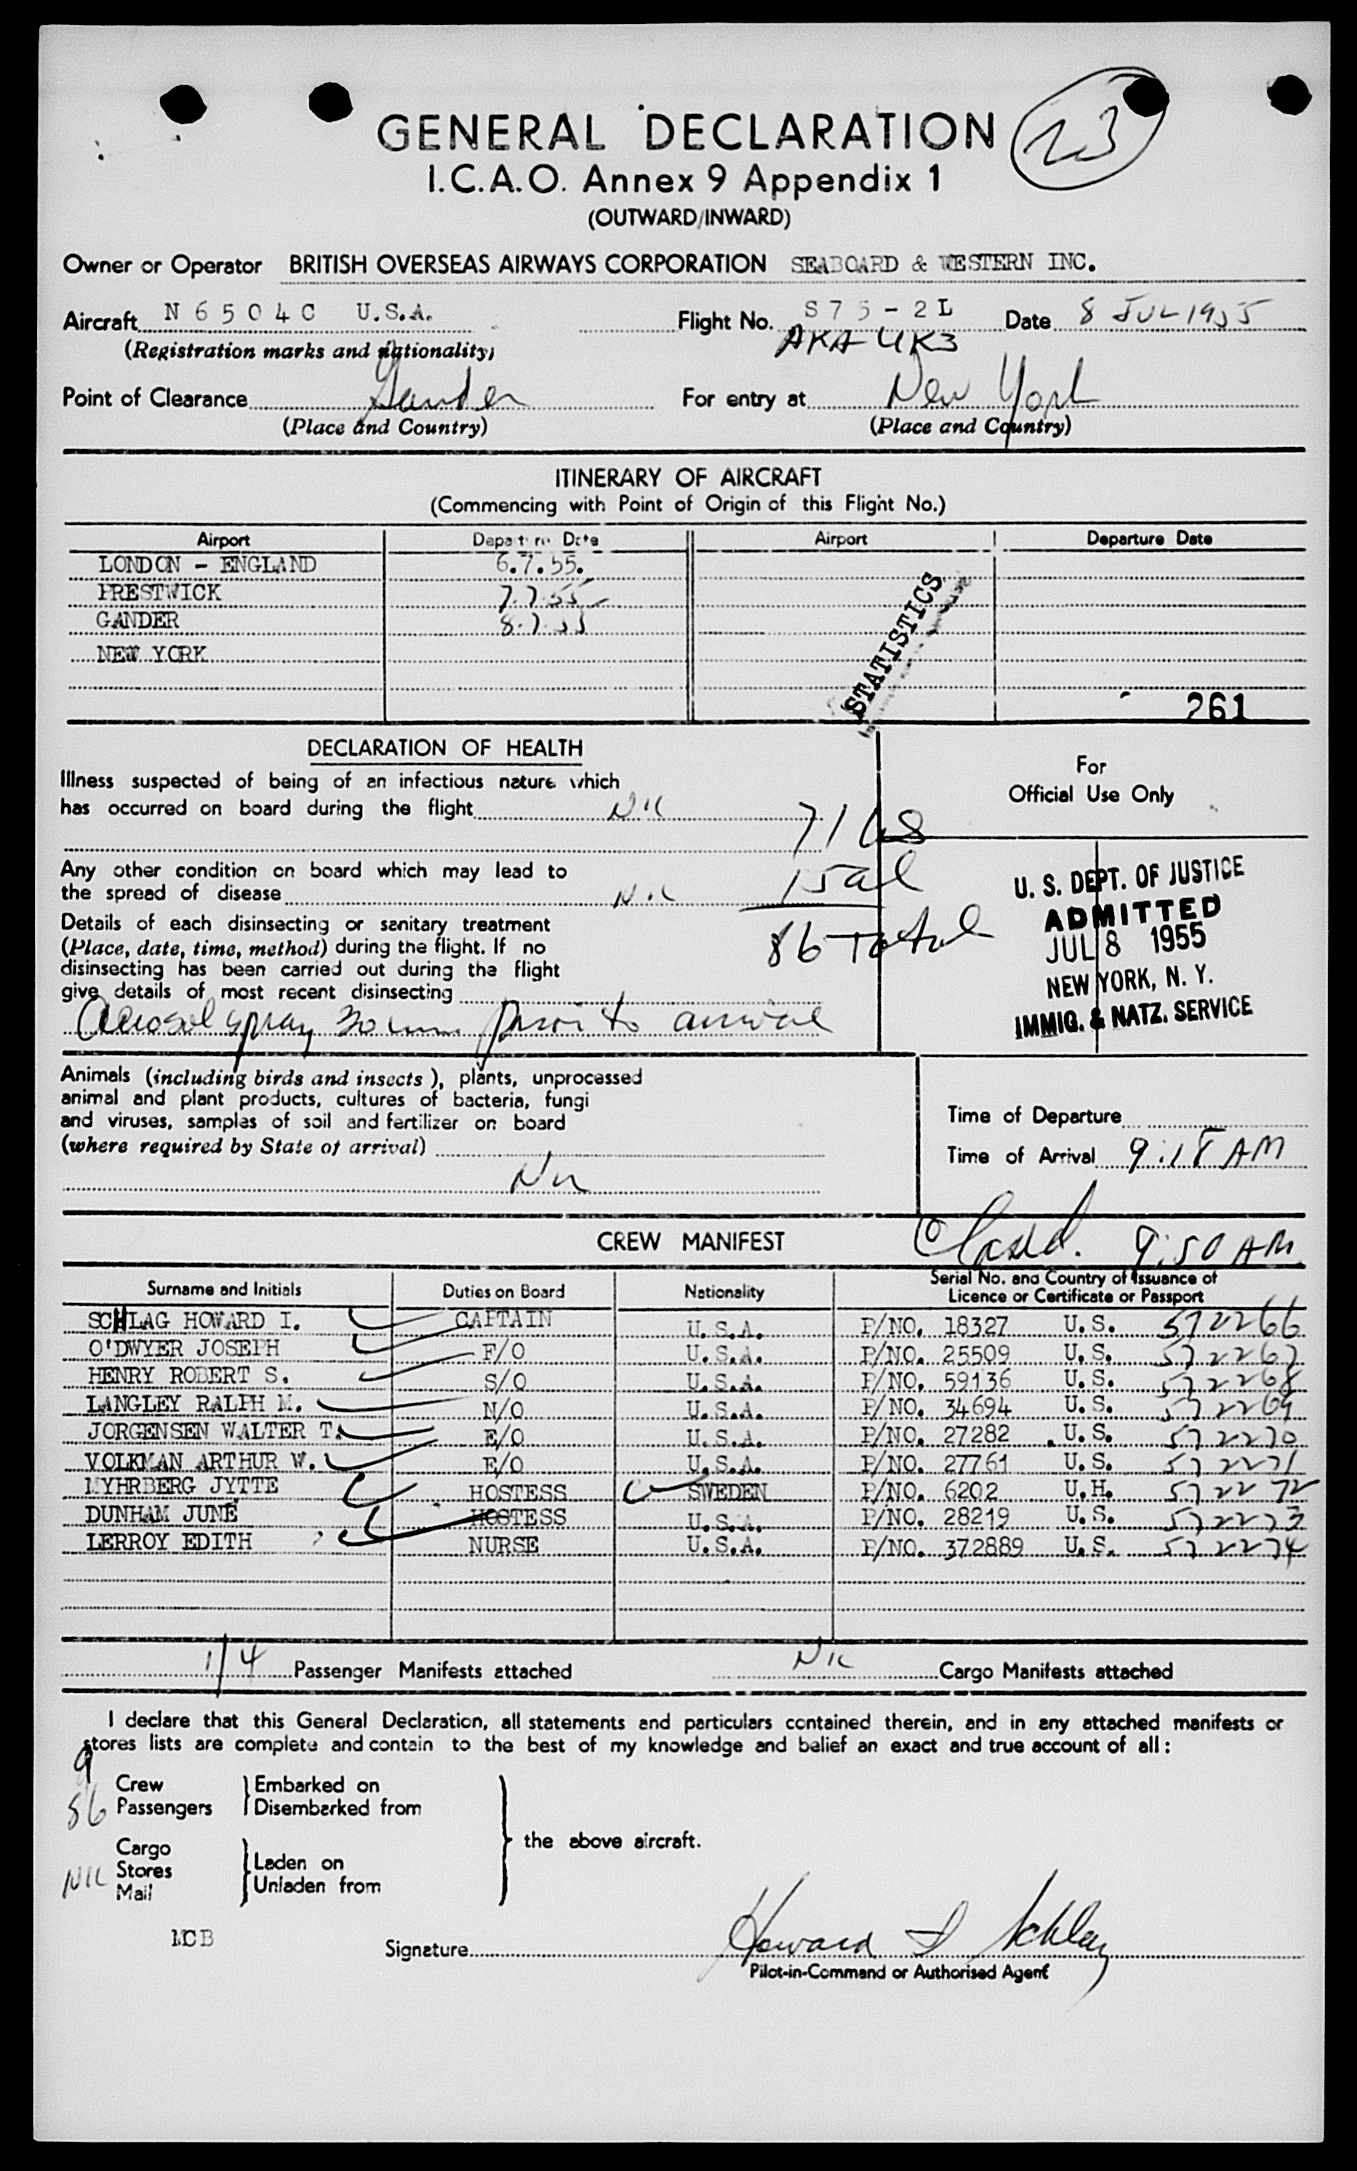 23
GENERAL DECLARATION
I.C.A.O. Annex 9 Appendix 1
(OUTWARD/INWARD)
Owner or Operator BRITISH OVERSEAS AIRWAYS CORPORATION SEABOARD & WESTERN INC.
Aircraft N6504C U.S.A. Flight No. S75-2L Date 8 JUL 1955
(Registration marks and nationality) AKA UK3
Point of Clearance Gander For entry at New York
(Place and Country) (Place and Country)
ITINERARY OF AIRCRAFT
(Commencing with Point of Origin of this Flight No.)
Airport Departure Date Airport Departure Date
LONDON - ENGLAND 6.7.55.
PRESTWICK 7.7.55
GANDER 8.7.55
NEW YORK
STATISTICS
261
DECLARATION OF HEALTH
Illness suspected of being of an infectious nature which
has occurred on board during the flight Nil
For
Official Use Only
71 US
Any other condition on board which may lead to
the spread of disease Nil
15 al
86 Total
Details of each disinsecting or sanitary treatment
(Place, date, time, method) during the flight. If no
disinsecting has been carried out during the flight
give details of most recent disinsecting
Aerosol spray 30 min prior to arrival
U. S. DEPT. OF JUSTICE
ADMITTED
JUL 8 1955
NEW YORK, N. Y.
IMMIG. & NATZ. SERVICE
Animals (including birds and insects), plants, unprocessed
animal and plant products, cultures of bacteria, fungi
and viruses, samples of soil and fertilizer on board
(where required by State of arrival)
Nil
Time of Departure
Time of Arrival 9:18 AM
CREW MANIFEST
Closed. 9:50 AM
Surname and Initials Duties on Board Nationality Serial No. and Country of Issuance of
Licence or Certificate or Passport
SCHLAG HOWARD I. CAPTAIN U.S.A. P/NO. 18327 U.S. 572266
O'DWYER JOSEPH F/O U.S.A. P/NO. 25509 U.S. 572267
HENRY ROBERT S. S/O U.S.A. P/NO. 59136 U.S. 572268
LANGLEY RALPH M. N/O U.S.A. P/NO. 34694 U.S. 572269
JORGENSEN WALTER T. E/O U.S.A. P/NO. 27282 U.S. 572270
VOLKMAN ARTHUR W. E/O U.S.A. P/NO. 27761 U.S. 572271
MYHRBERG JYTTE HOSTESS SWEDEN P/NO. 6202 U.H. 572272
DUNHAM JUNE HOSTESS U.S.A. P/NO. 28219 U.S. 572273
LERROY EDITH NURSE U.S.A. P/NO. 372889 U.S. 572274
1/4 Passenger Manifests attached Nil Cargo Manifests attached
I declare that this General Declaration, all statements and particulars contained therein, and in any attached manifests or
stores lists are complete and contain to the best of my knowledge and belief an exact and true account of all:
9 Crew Embarked on
86 Passengers Disembarked from
the above aircraft.
Cargo
Nil Stores Laden on
Mail Unladen from
MCB
Signature Howard I Schlag
Pilot-in-Command or Authorised Agent